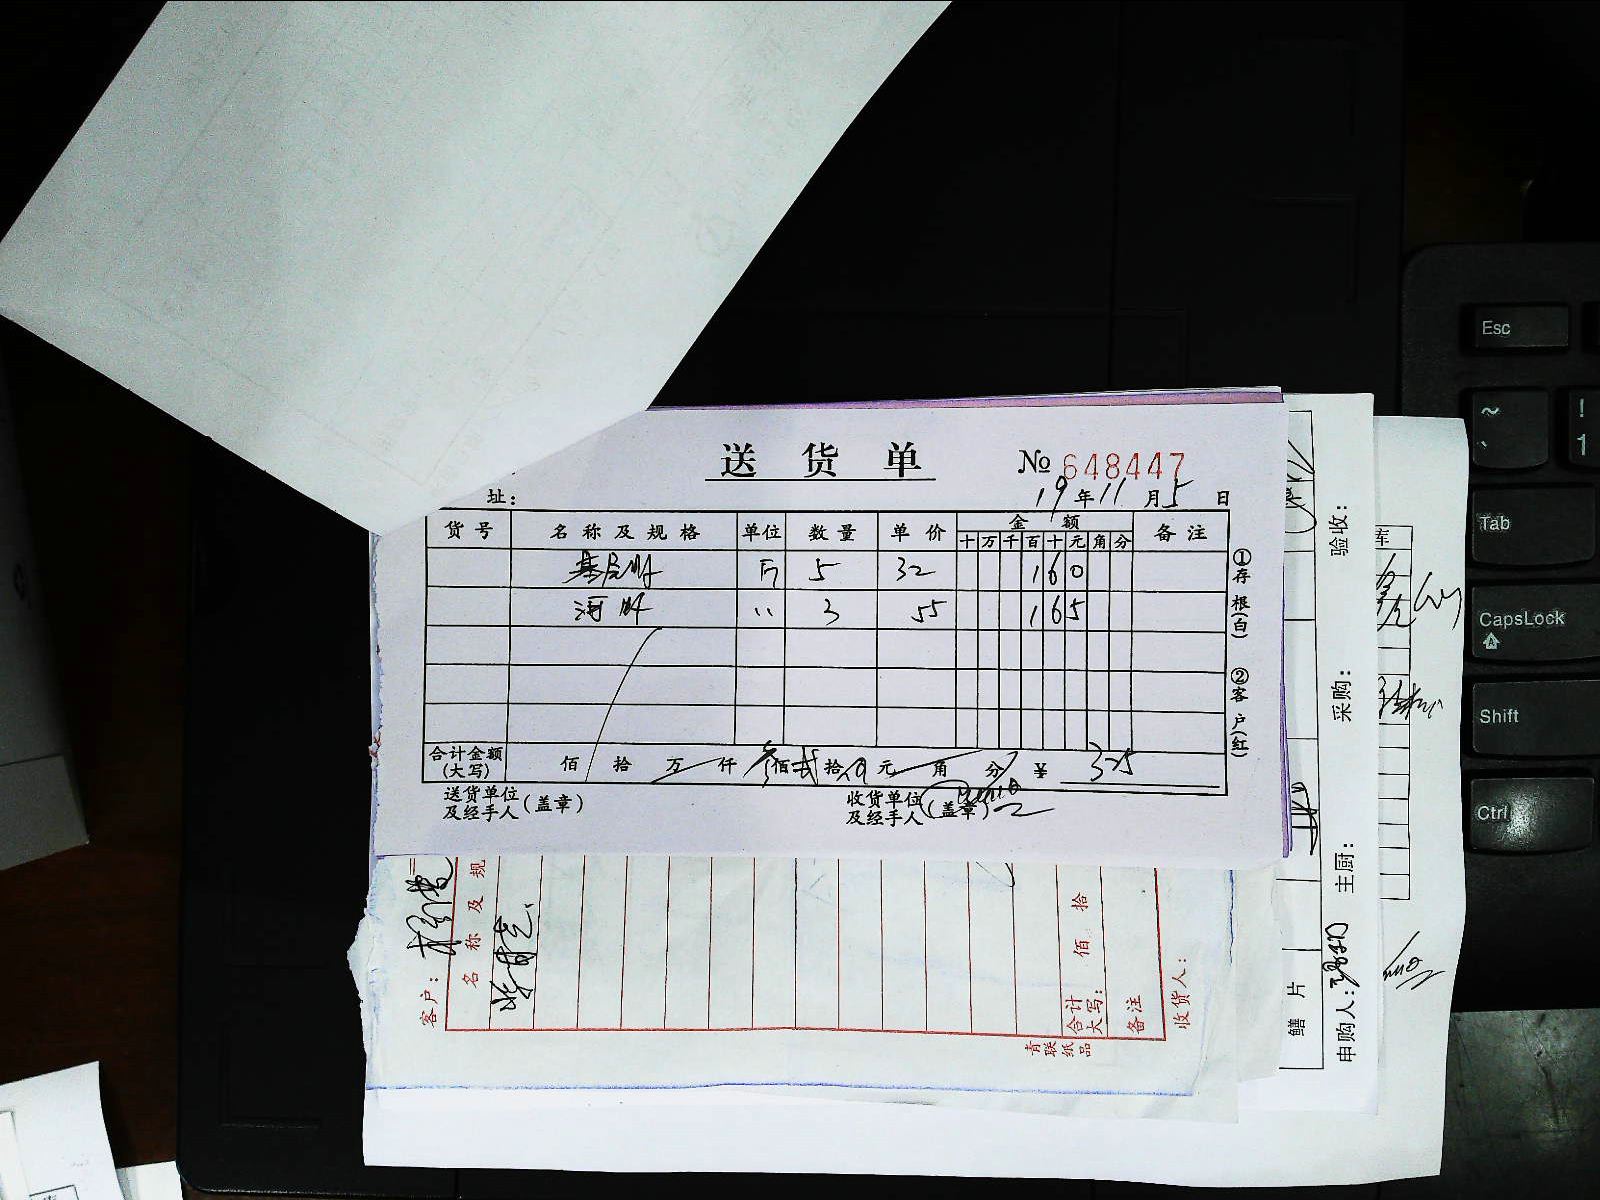 送货单 № 648447
址： 19年11月5日
货号 名称及规格 单位 数量 单价 金额 备注
十 万 千 百 十 元 角 分
基尾虾 斤 5 32 160
河虾 〃 3 55 165
合计金额(大写) 佰 拾 万 仟 叁佰 贰拾 伍元 角 分 ¥ 325
送货单位及经手人(盖章) 收货单位及经手人(盖章)
①存根(白) ②客户(红)
客户：
名称及规
合计大写： 佰 拾
备注
收货人：
青联纸品
鳝片
验收：
采购：
主厨：
申购人：
库
Esc
~
` ! 1
Tab
CapsLock
A
Shift
Ctrl